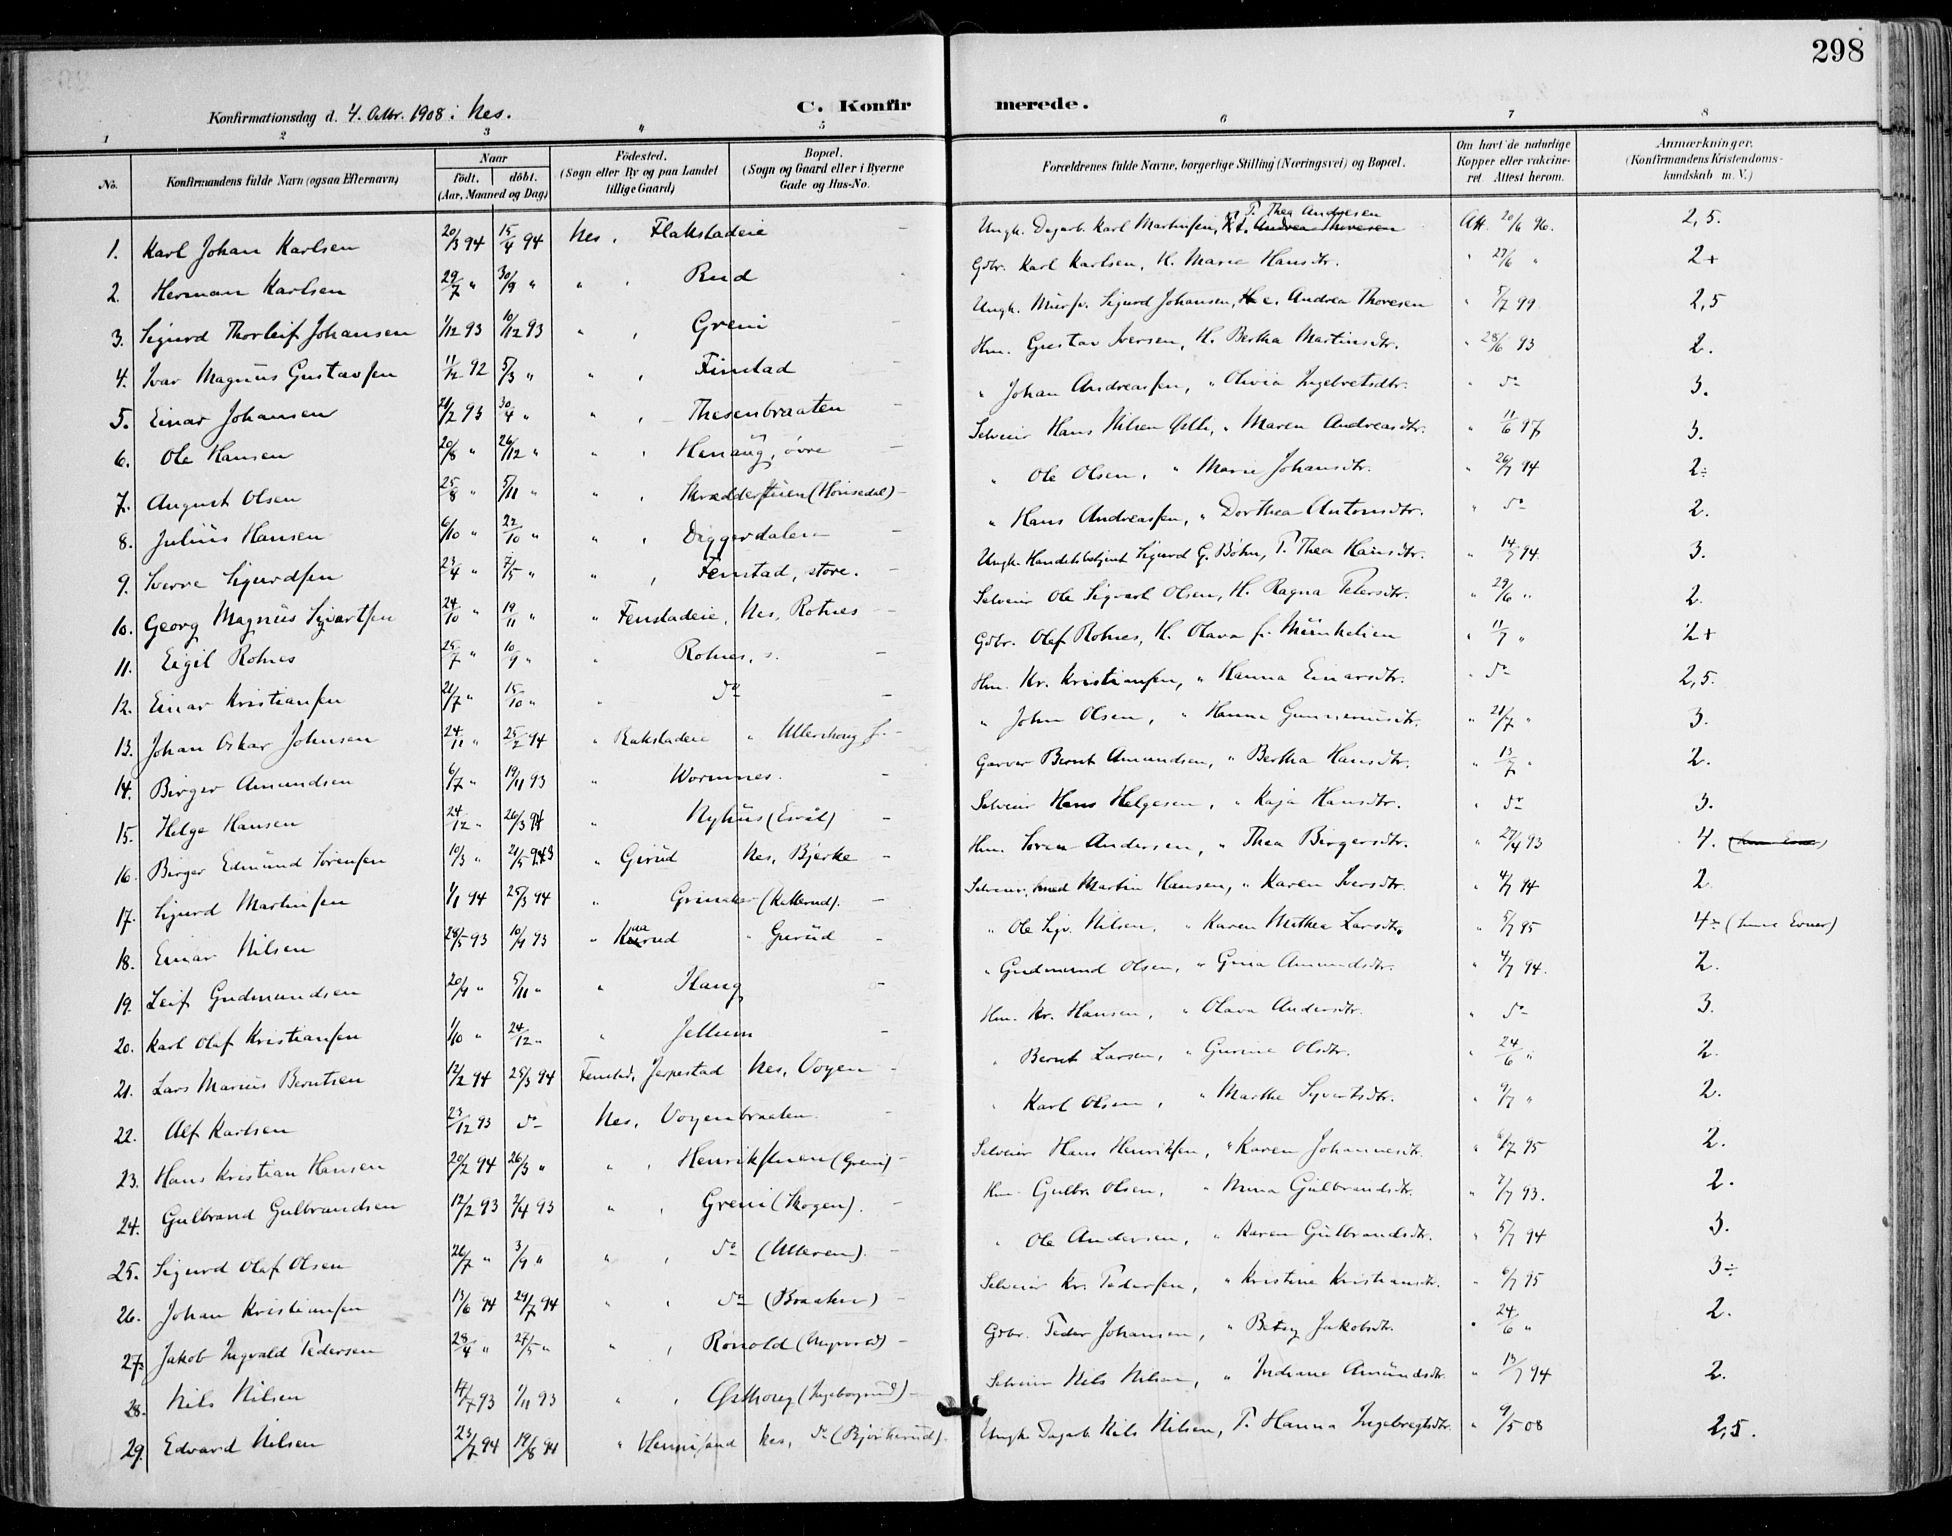 298
Konfirmationsdag d. 4. Oktbr. 1908 i Nes.
C. Konfirmerede.
1 2 3 " 5 6 7 8
No. Konfirmandens fulde Navn (ogsaa Efternavn) Naar Født. døbt. (Aar, Maaned og Dag) Fødested. (Sogn eller By og paa Landet tillige Gaard) Bopæl. (Sogn og Gaard eller i Byerne Gade og Hus-No. Forældrenes fulde Navne, borgerlige Stilling (Næringsvei) og Bopæl. Om havt de naturlige Kopper eller vakcineret. Attest herom. Anmærkninger. (Konfirmandens Kristendomskundskab m. V.)
1. Karl Johan Karlsen 20/3 94 15/4 94 Nes, Flakstadeie – Ungk. Dagarb. Karl Martinsen, P. Thea Andresen Att. 20/6 96. 2,5.
2. Herman Karlsen 29/7 " 30/9 " " , Rud Gbr. Karl Karlsen, H. Maria Hansdtr. " 23/6 " 2+
3. Sigurd Thorleif Johansen 1/12 93 10/12 93 " , Greni – Ungk. Murer Sigurd Johansen, Andrea Thoresen " 5/7 99 2,5
4. Ivar Magnus Gustavsen 11/12 92 5/3 " " , Finstad – Hm. Gustav Iversen, H. Bertha Martinsdtr. " 28/6 93 2.
5. Einar Johansen 21/2 93 30/4 " " , Thesenbraaten – " Johan Andreassen, " Olivia Ingebretsdtr. " do 3.
6. Ole Hansen 20/8 " 26/12 " " , Henaug, övre – Selveier Hans Nilsen, " Maren Andreasdtr. " 11/6 97 3.
7. August Olsen 25/8 " 5/11 " " , Skrædderstuen (Horisedal) – " Ole Olsen, " Marie Johansdtr. " 26/7 94 2÷
8. Julius Hansen 6/10 " 22/10 " " , Diggerdalen – " Hans Andreassen, " Dorthea Antonsdtr. " do 2.
9. Sverre Sigurdsen 23/4 " 7/5 " " , Fenstad, store. – Ungk. Handelsbetjent Sigurd G. Bøhn, P. Thea Hansdtr. " 14/7 94. 3.
10. Georg Magnus Sigvartsen 24/10 " 19/11 " " Fenstadeie, Nes, Rotnes – Selveier Ole Sigvart Olsen, H. Ragna Petersdtr. " 29/6 " 2.
11. Eigil Rotnes 25/7 " 10/9 " " Rotnes, s. – Gbr. Olef Rotnes, H. Olava f. Munkelien " 11/7 " 2+
12. Einar Kristiansen 21/7 " 15/10 " " do – Hm. Kr. Kristiansen, " Hanna Einarsdtr. " do 2,5.
13. Johan Oskar Johnsen 24/11 " 25/2 94 " Rakstadeie " Ullershoug – " John Olsen, " Hanna Gunneriusdtr. " 21/7 " 3.
14. Birger Amundsen 6/7 " 19/11 93 " Wormnes. – Garver Bernt Amundsen, " Bertha Hansdtr. " 13/7 " 2.
15. Helge Hansen 24/12 " 26/3 94 " Nyhus (Esvål) – Selveier Hans Helgesen, " Kaja Hansdtr. " do 3.
16. Birger Edmund Sørensen 10/3 " 21/5 93 " Girud Nes, Bjerke – Hm. Søren Andersen, " Thea Birgersdtr. " 27/4 93 4.
17. Sigurd Martinsen 1/1 94 25/3 94 " Grinaker (Kotterud). – Selveier, smed Martin Hansen, " Karen Iversdtr. " 4/7 94. 2.
18. Einar Nilsen 28/5 93 10/9 93 " " Gurud – " Ole Sigv. Nilsen, " Karen Mathea Larsdtr. " 5/7 95 4÷ (sene Evner)
19. Leif Gudmundsen 20/9 " 5/11 " " Haug – " Gudmund Olsen, " Gina Amundsdtr. " 4/7 94. 2.
20. Karl Olaf Kristiansen 1/10 " 24/12 " " Jellum – Hm. Kr. Hansen, " Olava Andersdtr. " do 3.
21. Lars Marius Berntsen 12/2 94 25/3 94 Fenstad, Jerpestad Nes, Voyen – " Bernt Larsen, " Gurine Olsdtr. " 24/6 " 2.
22. Alf Karlsen 23/12 93 do Nes, Voyenbraaten. – " Karl Olsen, " Marthe Syvertsdtr. " 9/7 " 2.
23. Hans Kristian Hansen 20/2 94 26/3 " " , Henrikstuen (Greni) – Selveier Hans Henriksen, " Karen Johannesdtr. " 6/7 95 2.
24. Gulbrand Gulbrandsen 12/2 93 2/4 93 " , Greni (Skogen). – Hm. Gulbr. Olsen, " Anna Gulbrandsdtr. " 7/7 93. 2.
25. Sigurd Olaf Olsen 26/7 " 3/9 " " , do (Ulleren). – " Ole Andersen, " Karen Gulbrandsdtr. " 5/7 94 3.
26. Johan Kristiansen 13/6 94 29/7 94 " , do (Braaten) – Selveier Kr. Pedersen, " Kristine Kristiansdtr. " 6/7 95 3÷
27. Jakob Ingvald Pedersen 28/4 " 27/5 " " , Rønold – Gbr. Peder Johansen, " Betzy Jakobsdtr. " 24/6 " 2.
28. Nils Nilsen 14/7 93 1/11 93 " , Østhoug (Ingeborgrud) – Selveier Nils Nilsen, " Indiane Amundsdtr. " 13/7 94 2.
29. Edvard Nilsen 23/7 94 19/8 94 " Nes, do (Bjørkerud). Ungk. Dagarb. Nils Nilsen, P. Hanna Ingebregtsdtr. " 9/5 08 2,5.